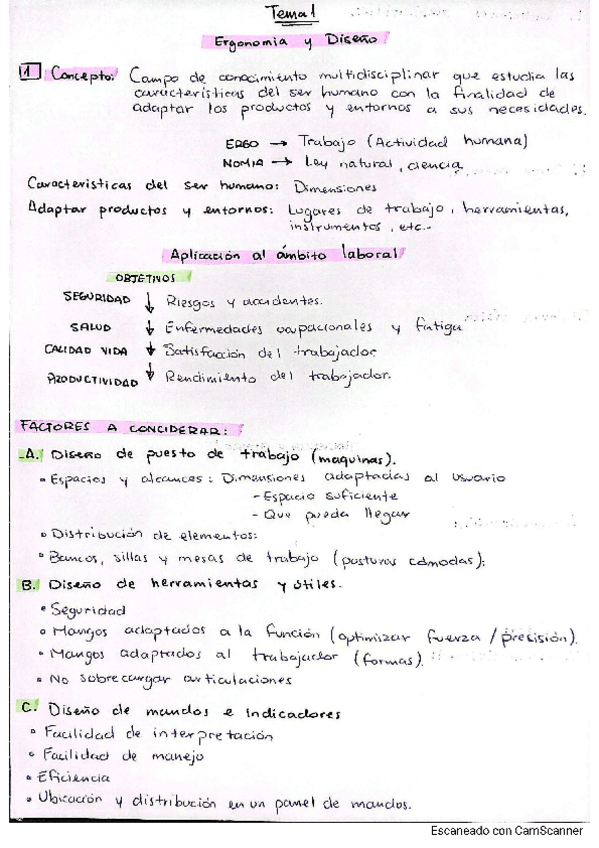 Tema 1
Ergonomia y Diseño
1 Concepto: Campo de conocimiento multidisciplinar que estudia las
características del ser humano con la finalidad de
adaptar los productos y entornos a sus necesidades.
ERGO → Trabajo (Actividad humana)
NOMIA → Ley natural, ciencia
Caracteristicas del ser humano: Dimensiones
Adaptar productos y entornos: Lugares de trabajo, herramientas,
instrumentos, etc..
Aplicación al ámbito laboral
OBJETIVOS
SEGURIDAD ↓ Riesgos y accidentes.
SALUD ↓ Enfermedades ocupacionales y fatiga
CALIDAD VIDA ↓ Satisfacción del trabajador
PRODUCTIVIDAD ↓ Rendimiento del trabajador.
FACTORES A CONCIDERAR:
A. Diseño de puesto de trabajo (maquinas).
• Espacios y alcances: Dimensiones adaptadas al usuario
- Espacio suficiente
- Que pueda llegar
• Distribución de elementos:
• Bancos, sillas y mesas de trabajo (posturas cómodas):
B. Diseño de herramientas y útiles.
• Seguridad
• Mangos adaptados a la función (optimizar fuerza / precisión).
• Mangos adaptados al trabajador (formas).
• No sobrecargar articulaciones
C. Diseño de mandos e indicadores
• Facilidad de interpretación
• Facilidad de manejo
• Eficiencia
• Ubicación y distribución en un panel de mandos.
Escaneado con CamScanner